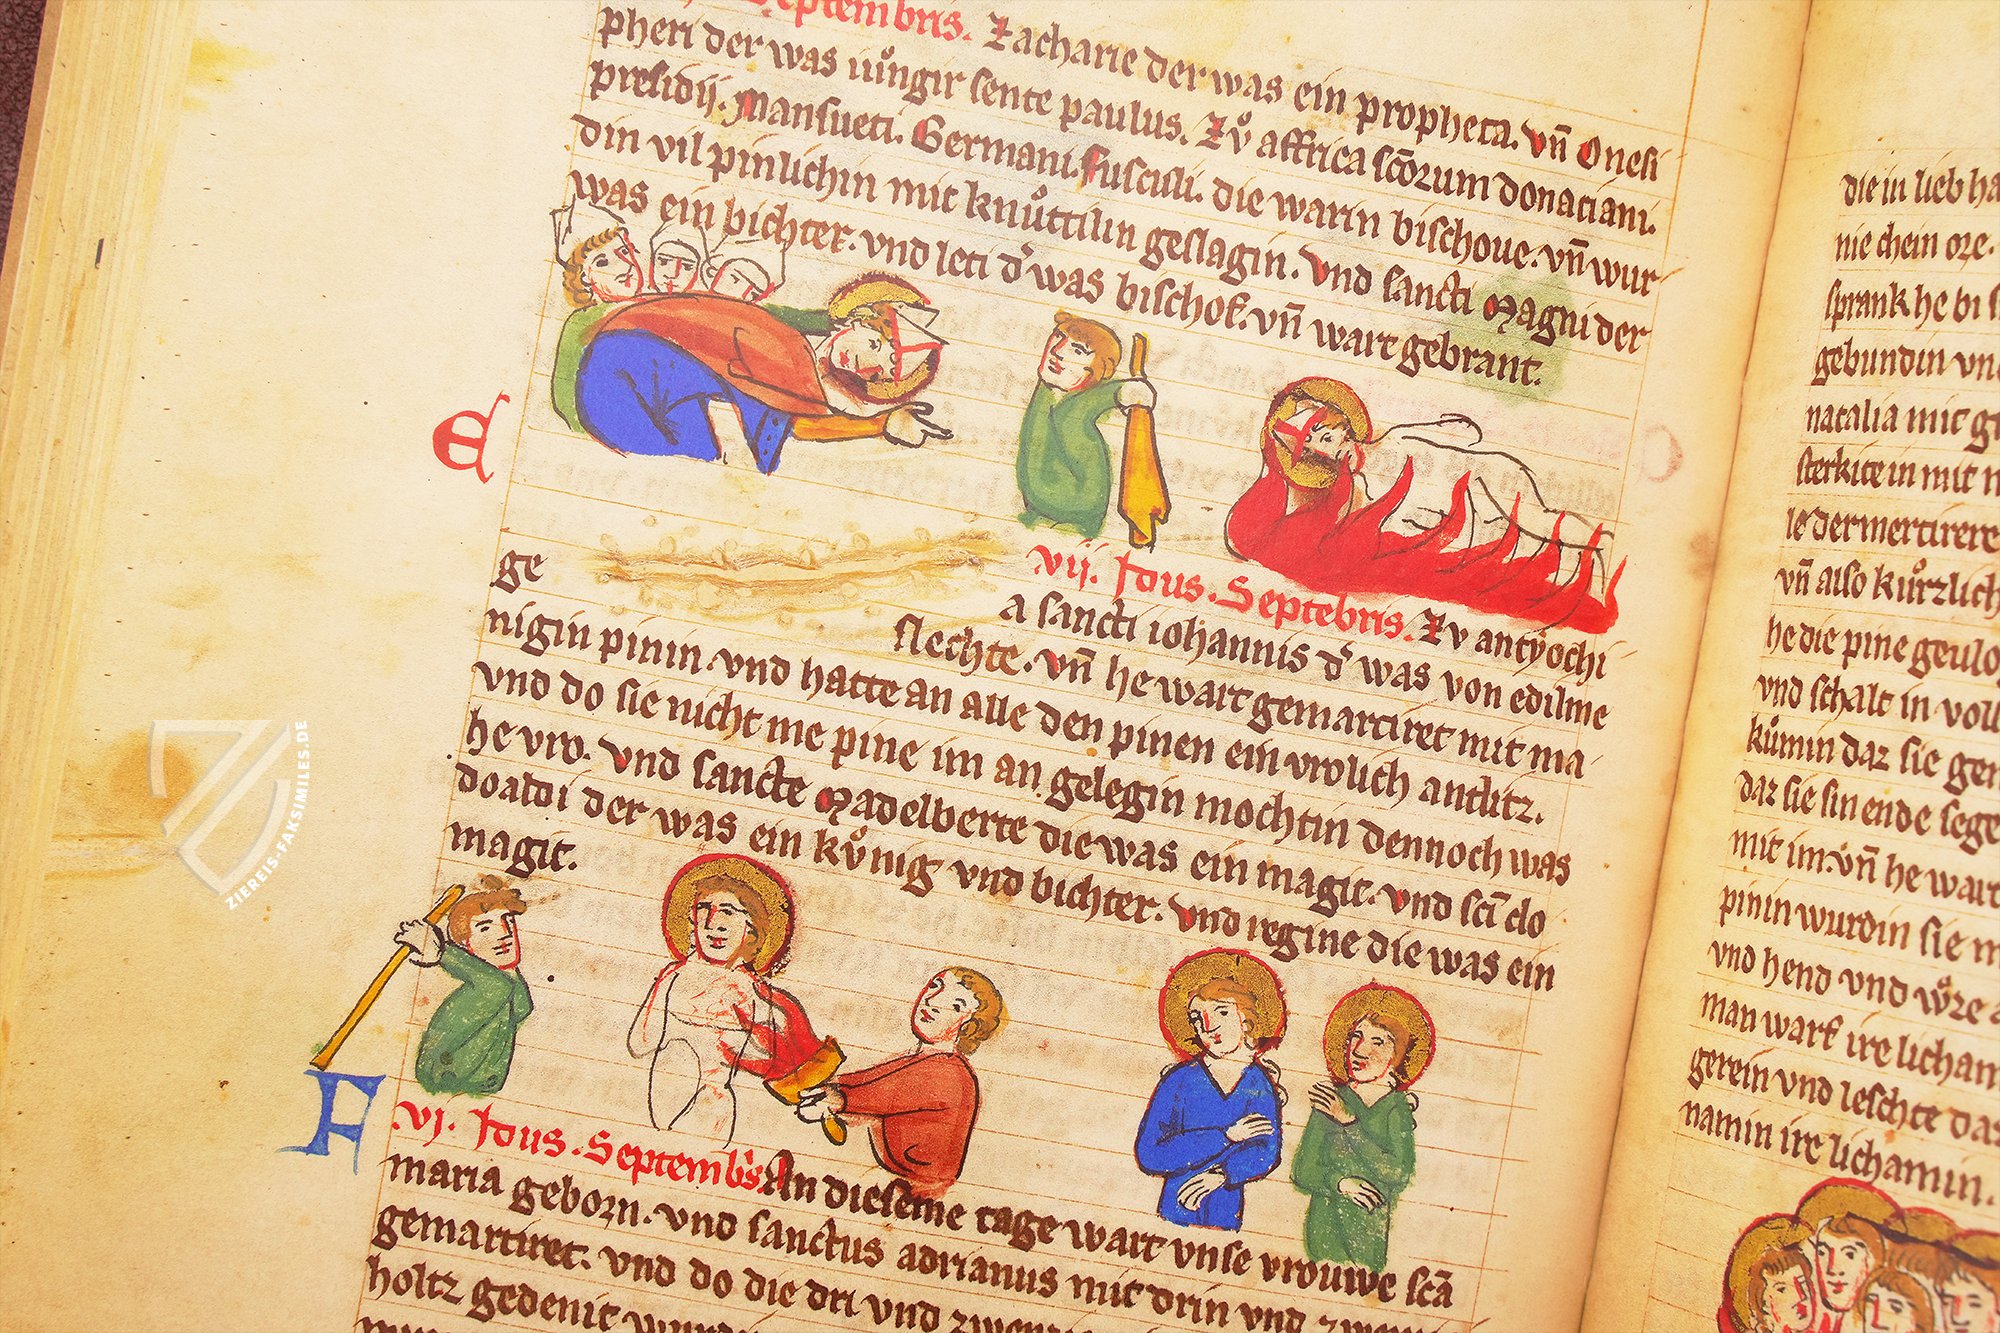 Septembris. Zacharie der was ein propheta. vn̄ Onesi
pheri der was iuͦngir sente paulus. Zuͦ affrica sc̄orum donaciani.
presidij. Mansueti. Germani. fusculi. die warin bischoue. vn̄ wur
din vil pinlichin mit knuͦttilin geslagin. vnd sancti Magni der
was ein bichter. vnd leti d' was bischof. vn̄ wart gebrant.
e
vij. Idus. Septēbris. Zv antyochi
a sancti iohannis d' was von edilme
ge slechte. vn̄ he wart gemartiret mit ma
nigin pinin. vnd hatte an alle den pinen ein vrolich antlitz.
vnd do sie nicht me pine im an gelegin mochtin dennoch was
he vro. vnd sancte Madelberte die was ein magit. vnd sc̄i clo
doaldi der was ein kuͦnig vnd bichter. vnd regine die was ein
magit.
F
vj. Idus. Septemb's. An diesme tage wart vnse vrouwe sc̄a
maria geborn. vnd sanctus adrianus mit drin vnd
gemartiret. vnd do die dri vnd zwenzi
holtz gedenit wurdi
die in lieb ha
nie chein ore.
sprank he bi
gebundin vn
natalia mit g
sterkite in mit
le der mertirere
vn̄ also kuͦrzlich
he die pine geulo
vnd schalt in voll
kuͦmin daz sie gen
daz sie sin ende sege
mit im. vn̄ he wart
pinin wurdin sie m
vnd hend vnd
man warf ire licham
gerein vnd leschte daz
namin ire lichamin.
ZIEREIS-FAKSIMILES.DE